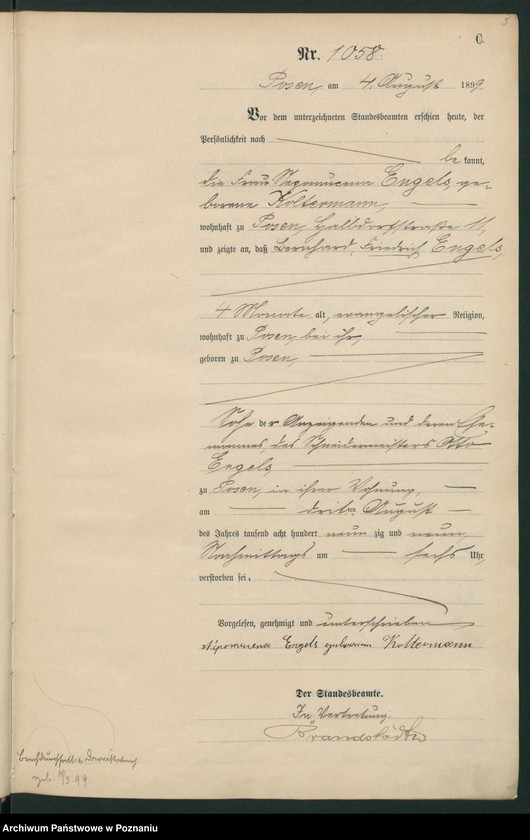 3
C.
Nr. 1058.
Posen, am 4. August 1899
Vor dem unterzeichneten Standesbeamten erschien heute, der
Persönlichkeit nach
bekannt,
die Frau Nepomucena Engels, ge-
borene Koltermann,
wohnhaft zu Posen, Halbdorfstraße 11,
und zeigte an, daß Bernhard, Friedrich Engels,
4 Monate alt, evangelischer Religion,
wohnhaft zu Posen, bei ihr,
geboren zu Posen,
Sohn der Anzeigenden und deren Ehe-
mannes, des Schneidermeisters Otto
Engels,
zu Posen, in ihrer Wohnung,
am dritten August
des Jahres tausend acht hundert neunzig und neun,
Nachmittags um sechs Uhr
verstorben sei.
Vorgelesen, genehmigt und unterschrieben
Nepomucena Engels geborene Koltermann
Der Standesbeamte.
In Vertretung.
geb. 3 99
Archiwum Państwowe w Poznaniu